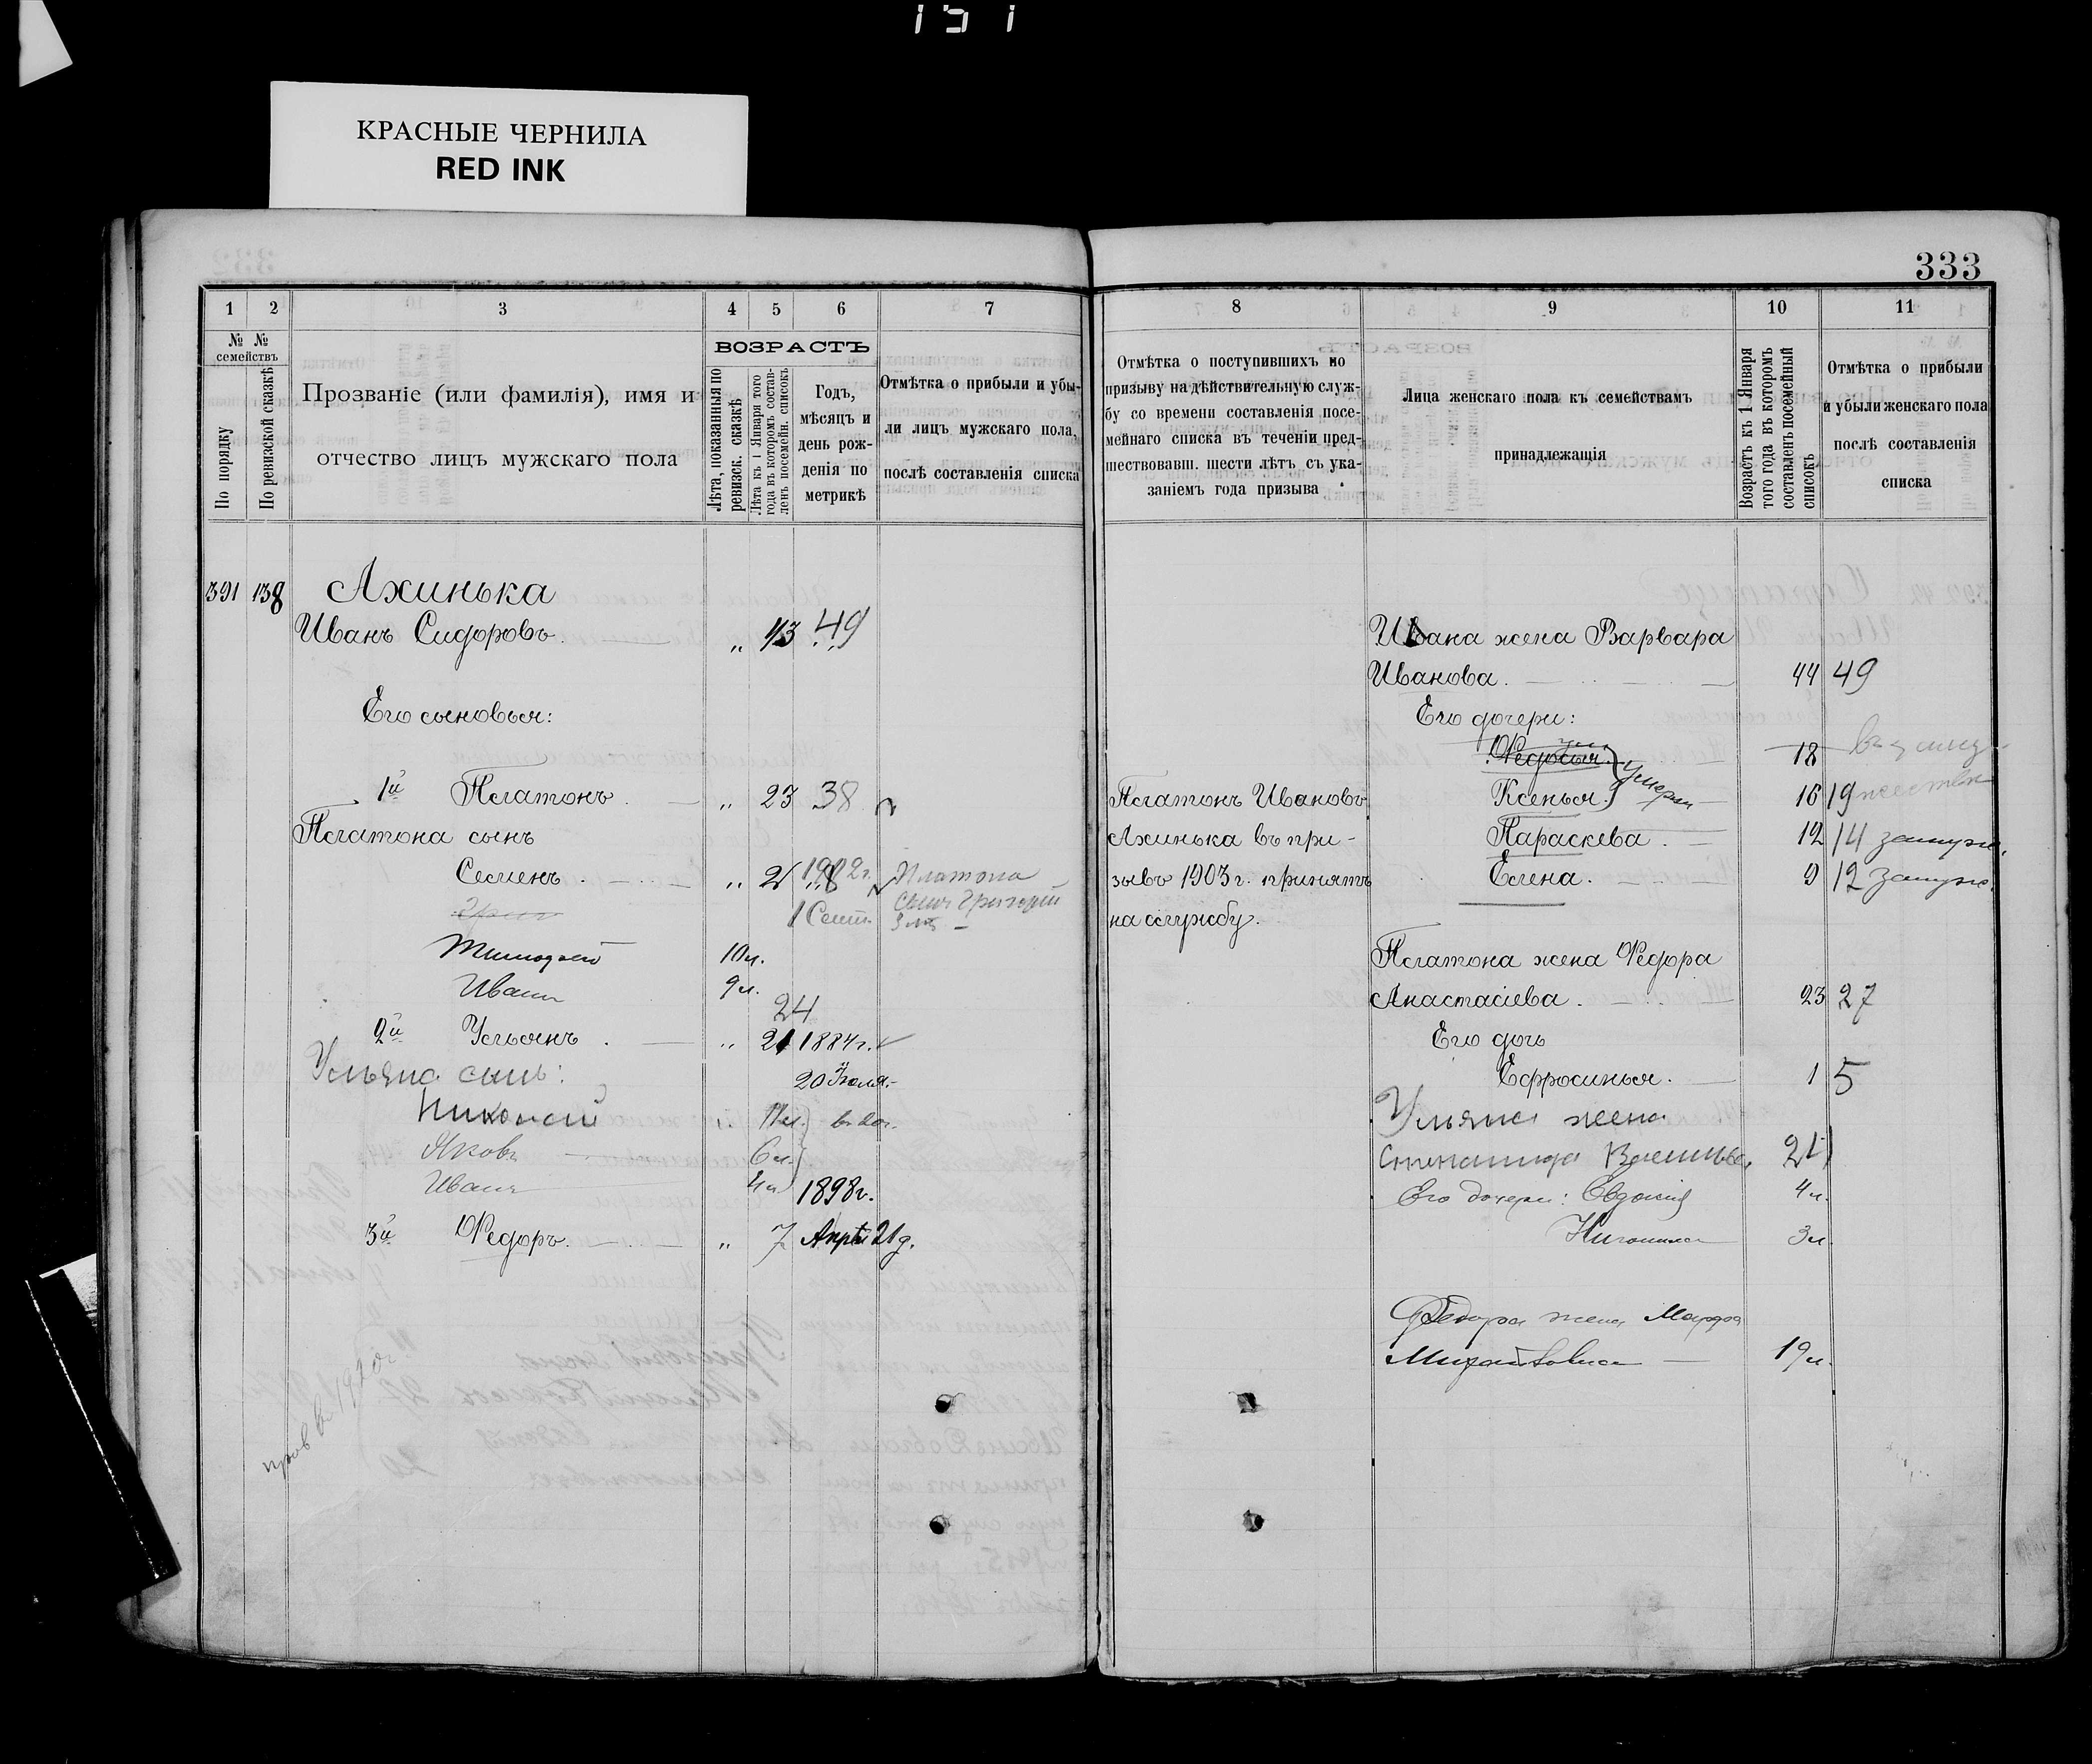 151
КРАСНЫЕ ЧЕРНИЛА
RED INK
333
1 2 3 4 5 6 7
№ № семействъ
По порядку
По ревизской сказкѣ
Прозваніе (или фамилія), имя и
отчество лицъ мужскаго пола
ВОЗРАСТЪ
Лѣта, показанныя по
ревизск. сказкѣ
Лѣта къ 1 Января того
года въ которомъ состав-
ленъ посемейн. списокъ
Годъ,
мѣсяцъ и
день рож-
денія по
метрикѣ
Отмѣтка о прибыли и убы-
ли лицъ мужскаго пола,
послѣ составленія списка
391 138 Ахинька
Иванъ Сидоровъ. „ 43 49
Его сыновья:
1й Платонъ. „ 23 38
Платона сынъ
Семенъ. „ 2 1902 г. Платона
1 Сент. сынъ Григорій
Тимофей 10 л.
Иванъ 9 л.
24
2й Ульянъ. „ 21 1884 г.
Ульяна сынъ: 20 Іюля
Николай 11 л.
Яковъ 6 л.
Иванъ 4 л. 1898 г.
3й Федоръ. „ 7 Апрѣл 21 д.
8 9 10 11
Отмѣтка о поступившихъ по
призыву на дѣйствительную служ-
бу со времени составленія посе-
мейнаго списка въ теченіи пред-
шествовавш. шести лѣтъ съ ука-
заніемъ года призыва
Лица женскаго пола къ семействамъ
принадлежащія
Возрастъ къ 1 Января
того года въ которомъ
составленъ посемейный
списокъ
Отмѣтка о прибыли
и убыли женскаго пола
послѣ составленія
списка
Платонъ Ивановъ
Ахинька въ при-
зывъ 1903 г. принятъ
на службу.
Ивана жена Варвара
Иванова. 44 49
Его дочери:
Федосья. 18
Ксенья. умерли 16 19
Параскева. 12 14 замуж.
Елена. 9 12 замуж.
Платона жена Федора
Анастасіева. 23 27
Его дочь
Ефросинья. 1 5
Ульяна жена
21
Его дочери: Евдокія 4 л.
3 л.
Федора жена Марфа
Михайловна 19 л.